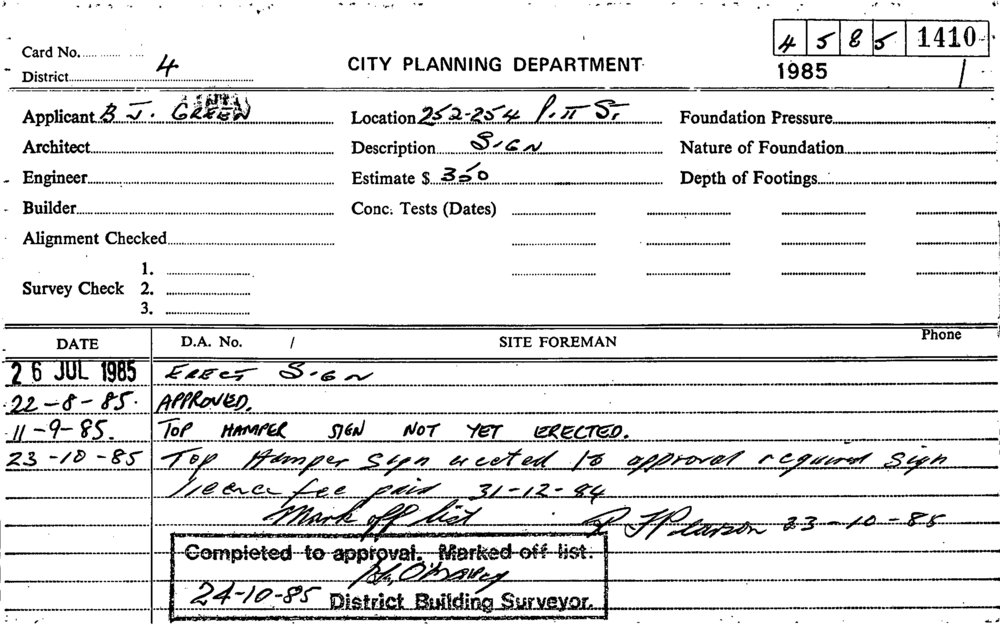 4 5 8 5 1410
Card No.
District 4
CITY PLANNING DEPARTMENT
1985
Applicant B J. GREEN
Location 252-254 Pitt St.
Foundation Pressure
Architect
Description SIGN
Nature of Foundation
Engineer
Estimate $ 350
Depth of Footings
Builder
Conc. Tests (Dates)
Alignment Checked
1.
Survey Check 2.
3.
DATE D.A. No. / SITE FOREMAN Phone
26 JUL 1985 ERECT SIGN
22-8-85. APPROVED.
11-9-85. TOP HAMPER SIGN NOT YET ERECTED.
23-10-85 Top Hamper sign erected to approval required sign
licence fee paid 31-12-84
Mark off list Pearson 23-10-85
Completed to approval. Marked off list.
24-10-85 District Building Surveyor.